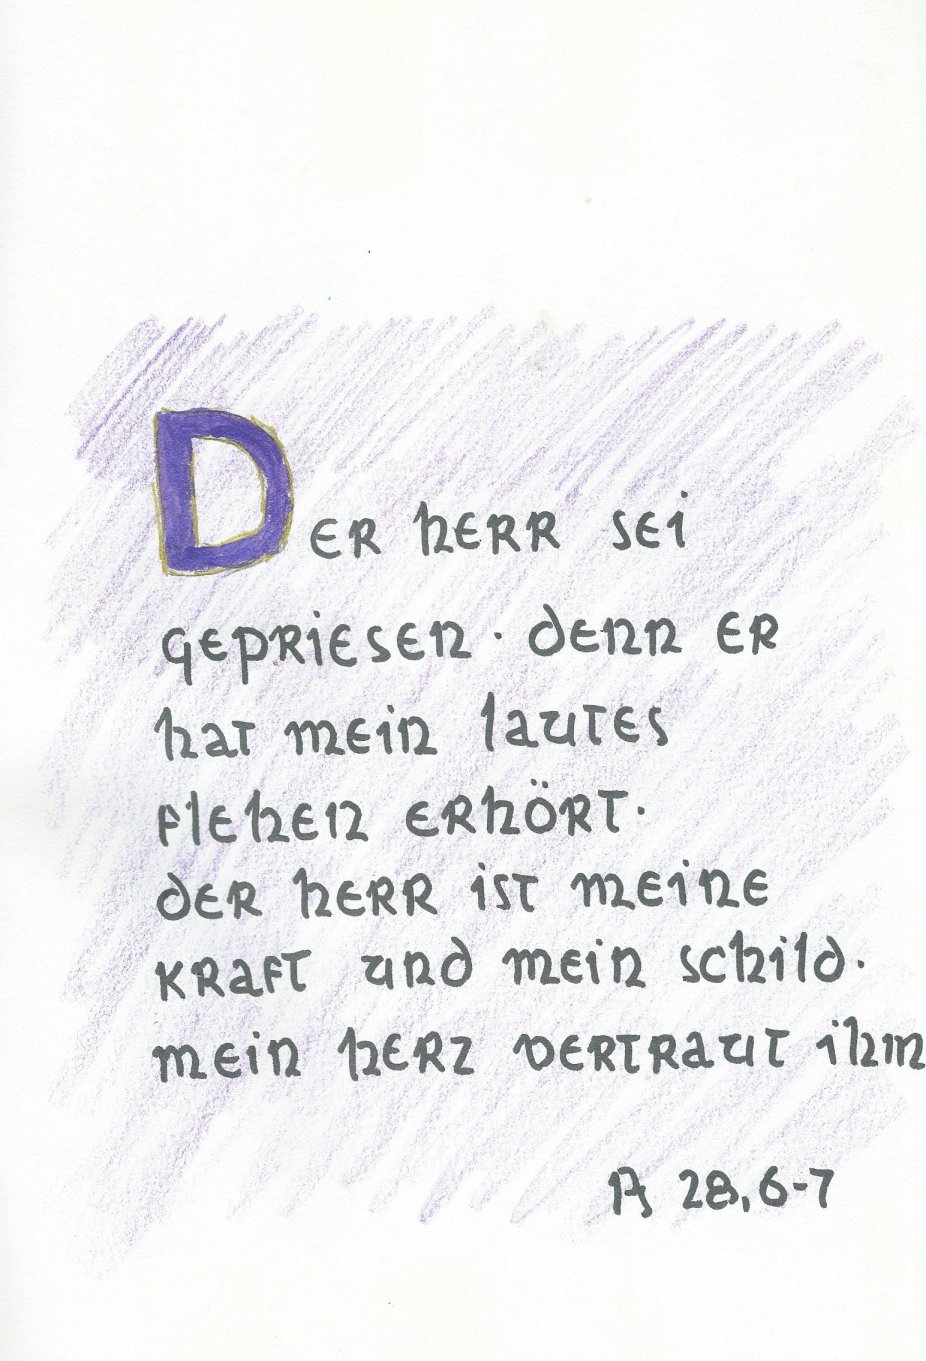 Der Herr sei
gepriesen. denn er
hat mein lautes
flehen erhört.
der Herr ist meine
kraft und mein schild.
mein herz vertraut ihm
Ps 28,6-7